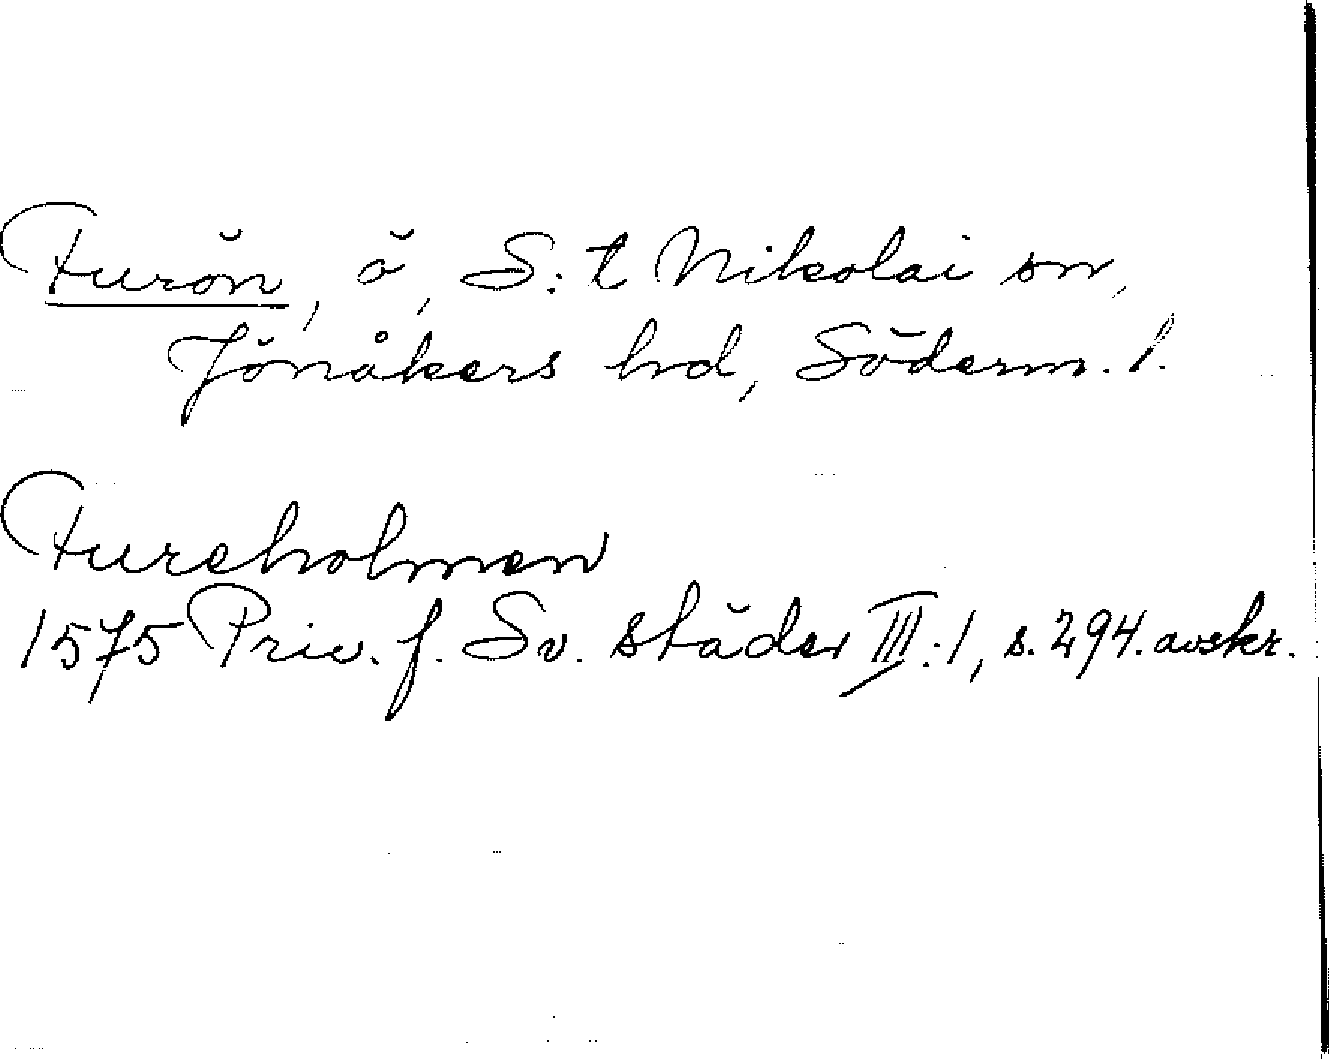 Furön, ö, S:t Nikolai sn,
Jönåkers hd, Söderm. l.
Fureholmen
1575 Priv. f. Sv. städer III:1, s. 294. avskr.